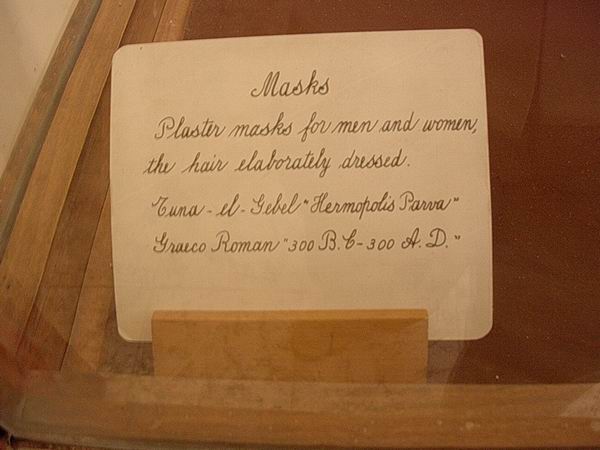 Masks
Plaster masks for men and women,
the hair elaborately dressed.
Tuna-el-Gebel "Hermopolis Parva"
Graeco Roman "300 B.C-300 A.D."